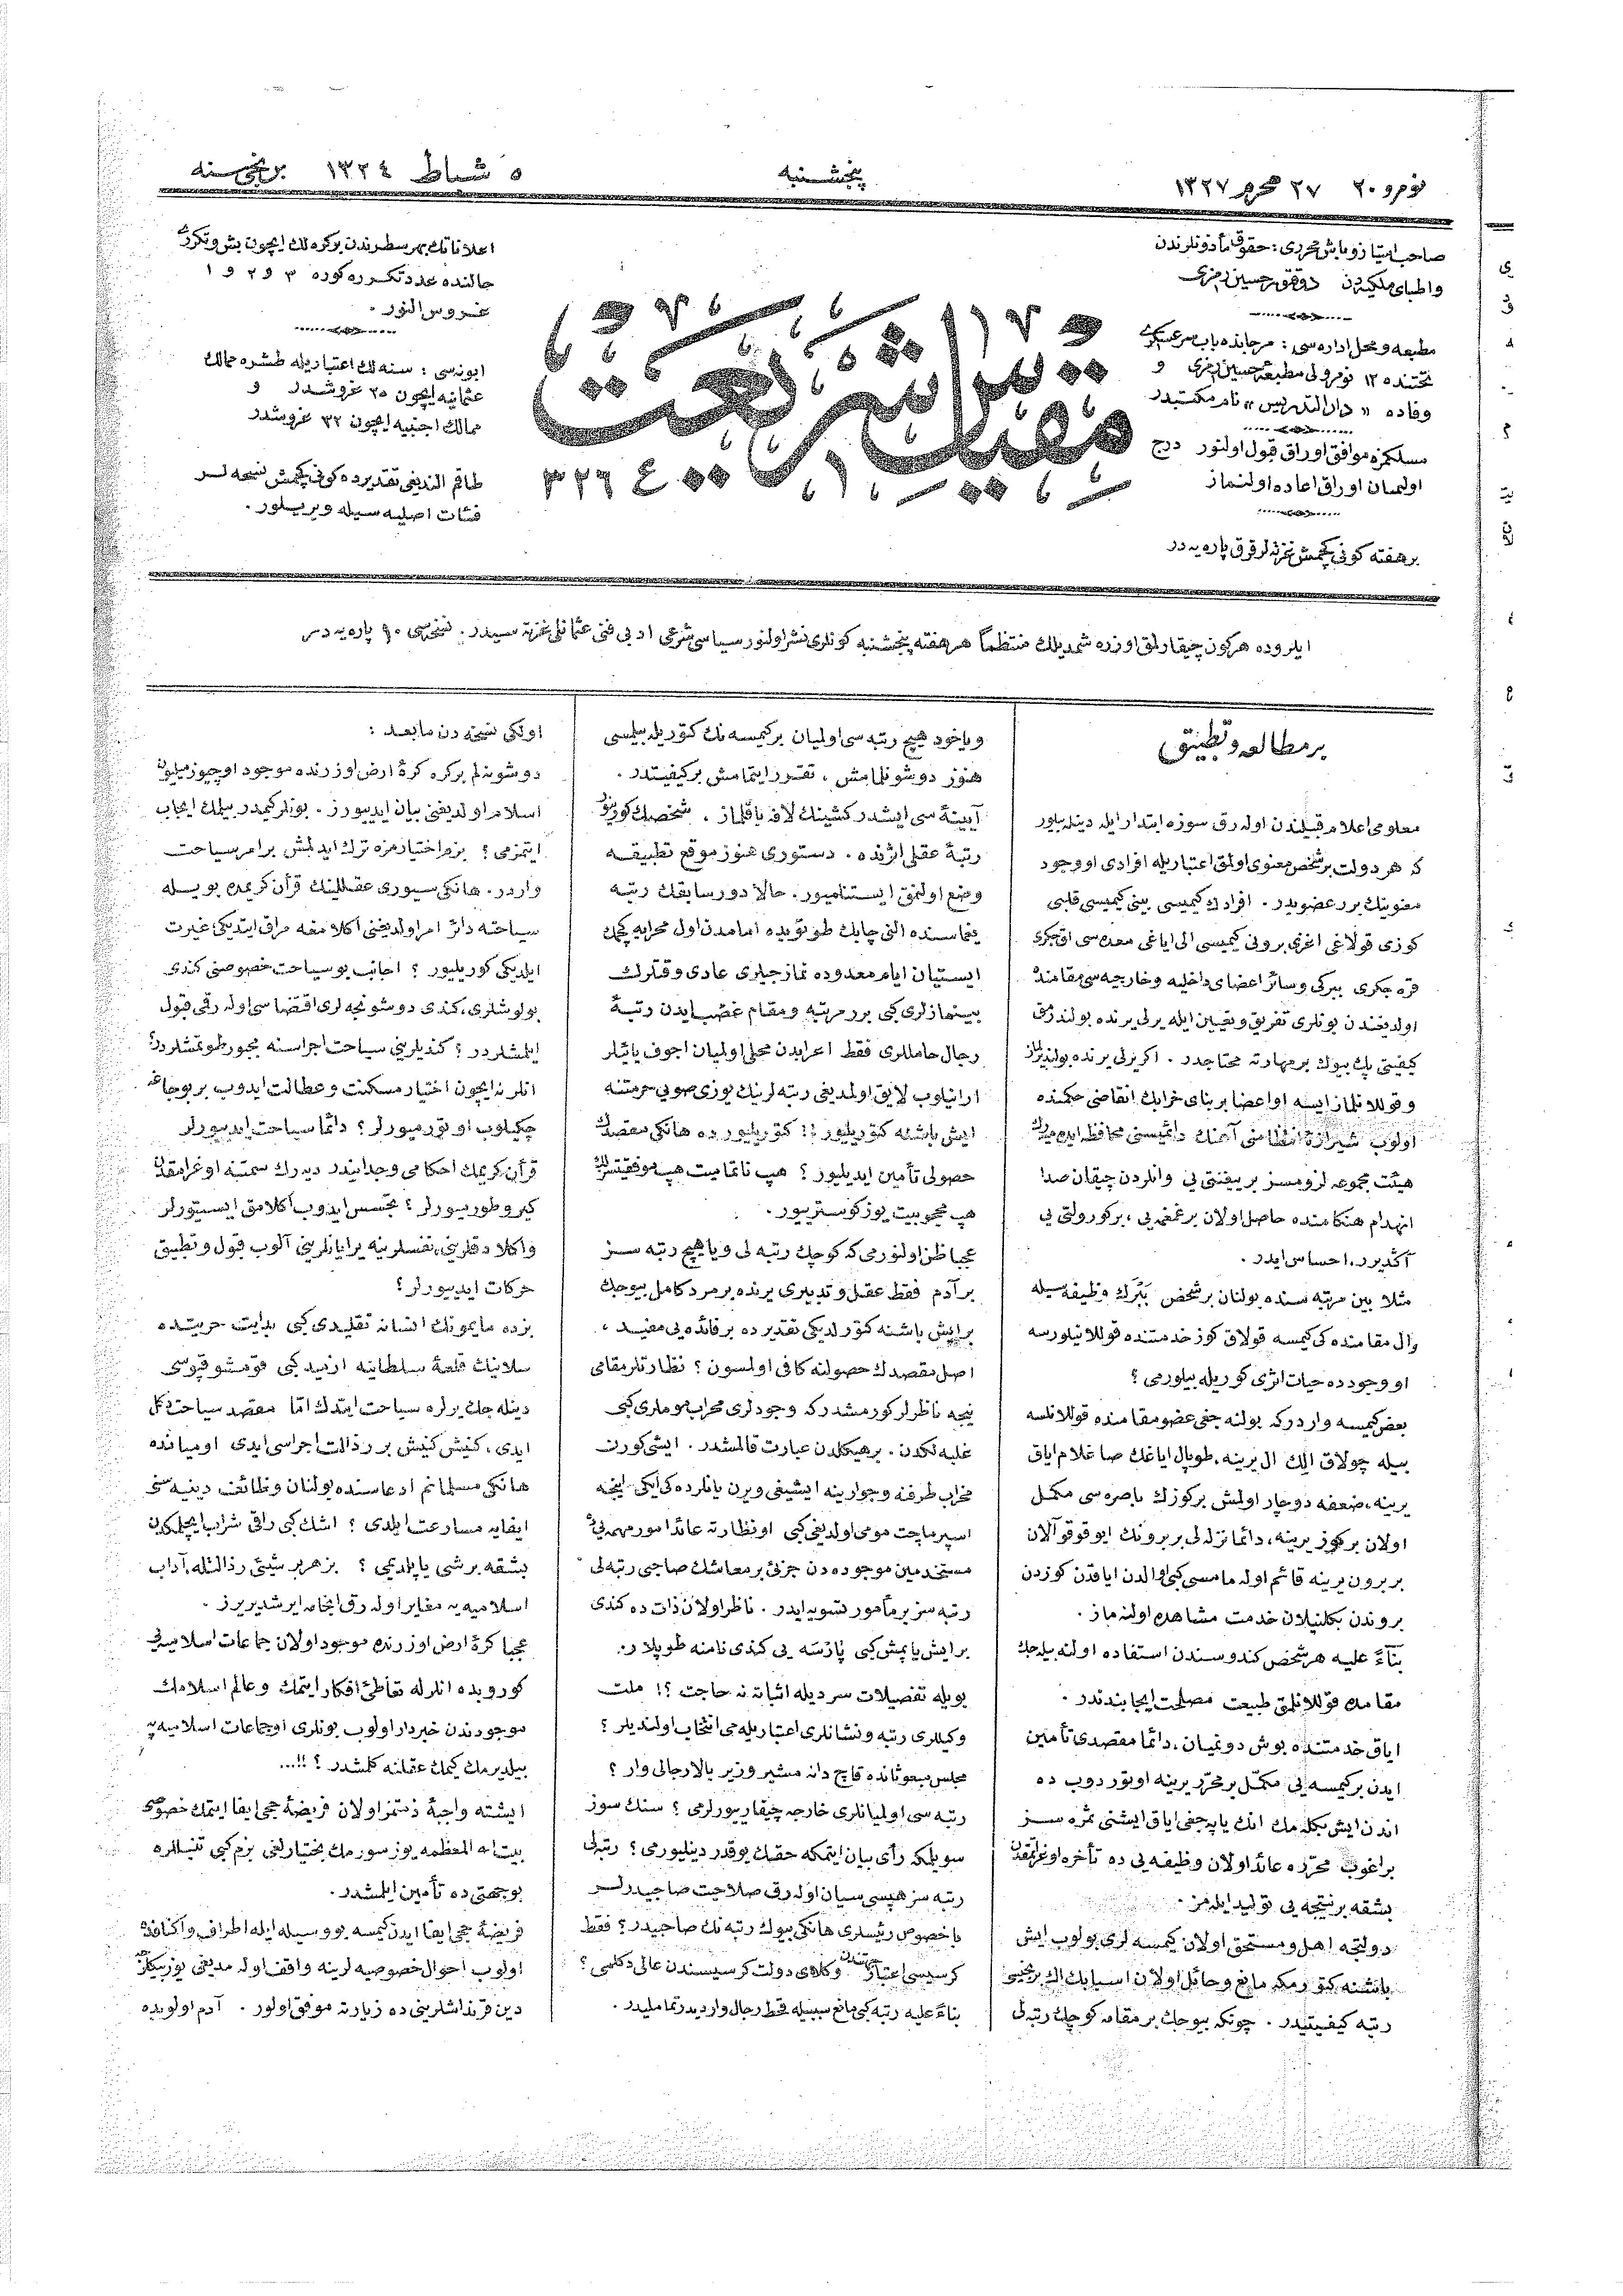 نومرو ٢٠ ٢٧ محرم ١٣٢٧
پنجشنبه
٥ شباط ١٣٢٤ برنجی سنه
صاحب امتیاز و باش محرری : حقوق مأذونلرندن
واطبای ملكیه‌دن دوقتور حسین رمزی
مطبعه و محل اداره‌سی : مرجانده باب سرعسكری
تحتنده ١٢ نومرولی مطبعهٔ حسین رمزی و
وفاده « دار التدریس » نام مكتبدر
مسلكمزه موافق اوراق قبول اولنور درج
اولنمیان اوراق اعاده اولنماز
بر هفته كونی كچمش غزته‌لر قرق پاره‌یه‌در
مقیاس شریعت
٣٢٦
اعلاناتك بهر سطرندن بر كره‌لك ایچون بش و تكرری
حالنده عدد تكرره كوره ٣ و ٢ و ١
غروس النور .
ابونه‌سی : سنه‌لك اعتباریله طشره ممالك
عثمانیه ایچون ٢٥ غروشدر و
ممالك اجنبیه ایچون ٣٢ غروشدر
طاقم النديغی تقدیرده كونی كچمش نسخه‌لر
فئات اصلیه‌سیله ویریلور .
ایلروده هركون چیقارلمق اوزره شمدیلك منتظماً هر هفته پنجشنبه كونلری نشر اولنور سیاسی شرعی ادبی فنی عثمانلی غزته‌سیدر . نسخه‌سی ١٠ پاره‌یه‌در
بر مطالعه و تطبیق
معلومی اعلام قبیلندن اوله‌رق سوزه ابتدار ایله دینله‌بیلور
كه هر دولت بر شخص معنوی اولمق اعتباریله افرادی او وجود
معنوینك برر عضویدر . افرادك كیمیسی بینی كیمیسی قلبی
كوزی قولاغی اغزی برونی كیمیسی الی ایاغی معده‌سی اق جكری
قره جكری ببركی وسائر اعضای داخلیه و خارجیه‌سی مقامنده
اولدیغندن بونلری تفریق و تعیین ایله یرلی یرنده بولندرمق
كیفیتی پك بیوك بر مهارته محتاجدر . اكر یرلی یرنده بولندیرلماز
و قوللانلماز ایسه او اعضا بر بنای خرابك انقاضی حكمنده
اولوب شیرازهٔ انتظامنی آهنك دائمیسنی محافظه ایده‌میه‌رك
هیئت مجموعه لزومسز بر ییغنتی یی و انلردن چیقان صدا
انهدام هنكامنده حاصل اولان بر غمغمه‌یی ، بر كورولتی یی
آكدیرر ، احساس ایدر .
مثلا بین مرتبه‌سنده بولنان بر شخص ببرك وظیفه‌سیله
وال مقامنده كی كیمسه قولاق كوز خدمتنده قوللانیلورسه
او وجودده حیات اثری كوریله بیلورمی ؟
بعض كیمسه واردركه بولنه جغی عضو مقامنده قوللانلسه
بیله چولاق الك ال یرینه ، طوپال ایاغك صاغلام ایاق
یرینه ، ضعفه دوچار اولمش بر كوزك باصره‌سی مكمل
اولان بر كوز یرینه ، دائما نزله‌لی بر برونك ایو قوقو آلان
بر برون یرینه قائم اوله‌مامسی كبی اوالدن ایاقدن كوزدن
بروندن بكلنیلان خدمت مشاهده اولنه‌ماز .
بناءً علیه هر شخص كندوسندن استفاده اولنه‌بیله‌جك
مقامده قوللانلمق طبیعت مصلحت ایجابندندر .
ایاق خدمتنده بوش دونمیان ، دائما مقصدی تأمین
ایدن بر كیمسه‌یی مكمل بر محرر یرینه اوتوردوب ده
اندن ایش بكله‌مك انك یاپه‌جغی ایاق ایشنی ثمره‌سز
براغوب محرره عائد اولان وظیفه‌یی ده تأخره اوغراتمقدن
بشقه بر نتیجه‌یی تولید ایله‌مز .
دولتجه اهل و مستحق اولان كیمسه‌لری بولوب ایش
باشنه كتورمكه مانع و حائل اولان اسبابك اك برنجیسی
رتبه كیفیتیدر . چونكه بیوجك بر مقامه كوچك رتبه‌لی
ویاخود هیچ رتبه‌سی اولمیان بر كیمسه‌نك كتوریله بیلمسی
هنوز دوشونلمامش ، تقرر ایتمامش بر كیفیتدر .
آیینه‌سی ایشدر كشینك لافه باقلماز ، شخصك كورینور
رتبهٔ عقلی اثرنده . دستوری هنوز موقع تطبیقه
وضع اولنمق ایستنلمیور . حالا دور سابقك رتبه
یغماسنده النی چابك طوتوبده امامدن اول محرابه كچمك
ایستیان ایام معدوده نمازجیلری عادی وقتلرك
بینمازلری كبی برر مرتبه و مقام غصب ایدن رتبهٔ
رجال حاملری فقط اعرابدن محلی اولمیان اجوف یائیلر
ارانیلوب لایق اولمدیغی رتبه‌لرینك یوزی صویی حرمتنه
ایش باشنه كتوریلیور !! كتوریلیورده هانكی مقصدك
حصولی تأمین ایدیلیور ؟ هپ ناتمامیت هپ موفقیتسزلك
هپ محجوبیت یوز كوستریور .
عجبا ظن اولنورمی كه كوچك رتبه‌لی ویا هیچ رتبه‌سز
بر آدم فقط عقل و تدبیری یرنده بر مرد كامل بیوجك
بر ایش باشنه كتورلدیكی تقدیرده بر فائده‌یی مفید ،
اصل مقصدك حصولنه كافی اولمسون ؟ نظارتلر مقامی
نیجه ناظرلر كورمشدركه وجودلری محراب موملری كبی
غلبه‌لكدن . بر هیكلدن عبارت قالمشدر . ایشی كورن
محراب طرفنه و جوارینه ایشیغی ویرن یانلرده‌كی ایكی اینجه
اسپرماچت مومی اولدیغی كبی او نظارته عائد امور مهمه‌یی
مستخدمین موجوده‌دن جزئی بر معاشك صاحبی رتبه‌لی
رتبه‌سز بر مأمور تسویه ایدر . ناظر اولان ذات ده كندی
بر ایش یاپمش كبی پازسه یی كندی نامنه طوپلار .
بویله تفصیلات سردیله اثباته نه حاجت ؟! ملت
وكیللری رتبه و نشانلری اعتباریله‌می انتخاب اولندیلر ؟
مجلس مبعوثانده قاچ دانه مشیر وزیر بالا رجالی وار ؟
رتبه‌سی اولمیانلری خارجه چیقاریورلرمی ؟ سنك سوز
سویلمكه رأی بیان ایتمكه حقك یوقدر دینلیورمی ؟ رتبه‌لی
رتبه‌سز هپسی سیان اوله‌رق صلاحیت صاحبیدرلر
باخصوص رئیسلری هانكی بیوك رتبه‌نك صاحبیدر ؟ فقط
كرسیسی اعتبار جهتندن وكلای دولت كرسیسندن عالی دكلمی ؟
بناءً علیه رتبه كبی مانع سببیله قحط رجال واردیدرتمامالیدر .
اولكی نسخه‌دن مابعد :
دوشونه‌لم بر كره كرهٔ ارض اوزرنده موجود اوچیوز میلیون
اسلام اولدیغنی بیان ایدییورز . بونلر كیمدر بیلمك ایجاب
ایتمزمی ؟ بزم اختیارمزه ترك ایدلمش بر امر سیاحت
واردر . هانكی سیوری عقللینك قرآن كریمده بویله
سیاحته دائر امر اولدیغنی آكلامغه مراق ایتدیكی غیرت
ایلدیكی كوریلیور ؟ اجانب بو سیاحت خصوصنی كندی
بولوشلری ، كندی دوشونجه‌لری اقتضاسی اوله‌رق قبول
ایلمشلردر ؟ كندیلرینی سیاحت اجراسنه مجبور طوتمشلردر
انلر نه ایچون اختیار مسكنت و عطالت ایدوب بر بوجاغه
چكیلوب اوتورمیورلر ؟ دائما سیاحت ایدییورلر
قرآن كریمك احكامی وجدانیدر دیه‌رك سمتنه اوغرامقدن
كیرو طورییورلر ؟ تجسس ایدوب آكلامق ایستیورلر
و آكلادقلرینی ، نفسلرینه یرایانلرینی آلوب قبول و تطبیق
حركات ایدییورلر ؟
بزده مایمونك انسانه تقلیدی كبی بدایت حریتده
سلانیك قلعهٔ سلطانیه ازمید كبی قومشو قپوسی
دینله‌جك یرلره سیاحت ایتدك اما مقصد سیاحت دكل
ایدی ، كنیش كنیش برر ذالت اجراسی ایدی او میانده
هانكی مسلمانم ادعاسنده بولنان وظائف دینیه‌سنی
ایفایه مسارعت ایلدی ؟ اشك كبی راقی شراب ایچلمكدن
بشقه بر شی یاپلدیمی ؟ بز هر بر شیئی رذالتله ، آداب
اسلامیه‌یه مغایر اوله‌رق انجامه ایرشدیررز .
عجبا كرهٔ ارض اوزرنده موجود اولان جماعات اسلامیه‌یی
كوروبده انلرله تعاطئ افكار ایتمك و عالم اسلامك
موجودندن خبردار اولوب بونلری او جماعات اسلامیه‌یه
بیلدیرمك كیمك عقلنه كلمشدر ؟ !!...
ایشته واجبهٔ ذمتمز اولان فریضهٔ حجی ایفا ایتمك خصوصی
بیت الله المعظمه یوز سورمك بختیارلغی بزم كبی تنبللره
بو جهتی ده تأمین ایلمشدر .
فریضهٔ حجی ایفا ایدن كیمسه بو وسیله ایله اطراف و اكنافده
اولوب احوال خصوصیه‌لرینه واقف اوله‌مدیغی یوز بیكلرجه
دین قرنداشلرینی ده زیارته موفق اولور . آدم اولوبده